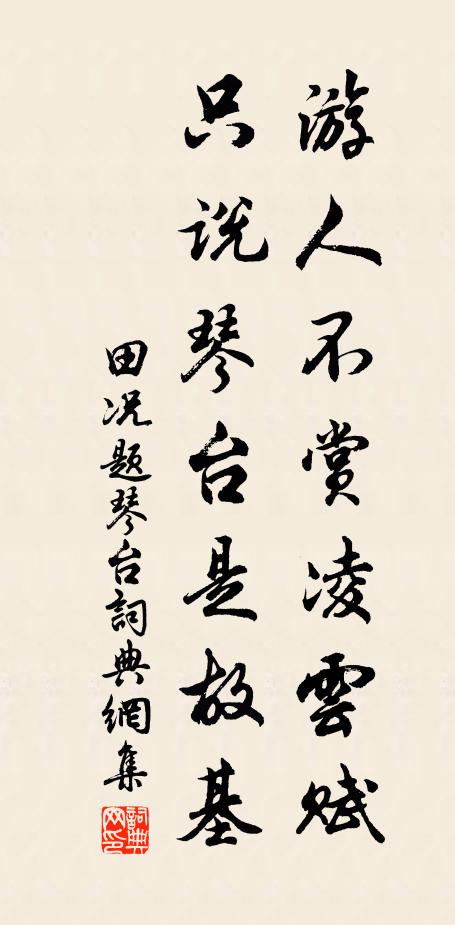 游人不赏凌雲赋
只说琴台是故基
田况题琴台詞典網集
詞典网印